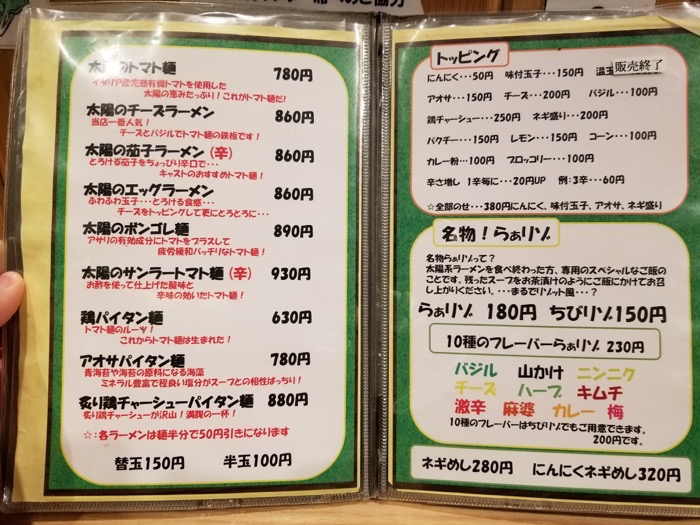 太陽のトマト麺 780円
イタリア産完熟有機トマトを使用した
太陽の恵みたっぷり!これがトマト麺だ!
太陽のチーズラーメン 860円
当店一番人気!
チーズとバジルでトマト麺の鉄板です!
太陽の茄子ラーメン(辛) 860円
とろける茄子をちょっぴり辛口で・・・
キャストのおすすめトマト麺!
太陽のエッグラーメン 860円
ふわふわ玉子・・・とろける食感・・・
チーズをトッピングして更にとろとろに・・・
太陽のボンゴレ麺 890円
アサリの有効成分にトマトをプラスして
疲労緩和バッチリなトマト麺!
太陽のサンラートマト麺(辛) 930円
お酢を使って仕上げた酸味と
辛味の効いたトマト麺!
鶏パイタン麺 630円
トマト麺のルーツ!
これからトマト麺は生まれた!
アオサパイタン麺 780円
青海苔や海苔の原料になる海藻
ミネラル豊富で程良い塩分がスープとの相性ばっちり!
炙り鶏チャーシューパイタン麺 880円
炙り鶏チャーシューが沢山!満腹の一杯!
☆:各ラーメンは麺半分で50円引きになります
替玉150円 半玉100円
トッピング
にんにく・・50円 味付玉子・・・150円 温玉 販売終了
アオサ・・・150円 チーズ・・・200円 バジル・・・100円
鶏チャーシュー・・・250円 ネギ盛り・・・200円
パクチー・・・150円 レモン・・・150円 コーン・・・100円
カレー粉・・・100円 ブロッコリー・・・100円
辛さ増し 1辛毎に・・・20円UP 例:3辛・・・60円
☆全部のせ・・・380円にんにく、味付玉子、アオサ、ネギ盛り
名物!らぁリゾ
名物らぁリゾって?
太陽系ラーメンを食べ終わった方、専用のスペシャルなご飯の
ことです。残ったスープをお茶漬けのようにご飯にかけてお召
し上がりください、・・・まるでリゾット風・・・?
らぁリゾ 180円 ちびリゾ150円
10種のフレーバーらぁリゾ 230円
バジル 山かけ ニンニク
チーズ ハーブ キムチ
激辛 麻婆 カレー 梅
10種のフレーバーはちびリゾでもご用意できます。
200円です。
ネギめし280円 にんにくネギめし320円